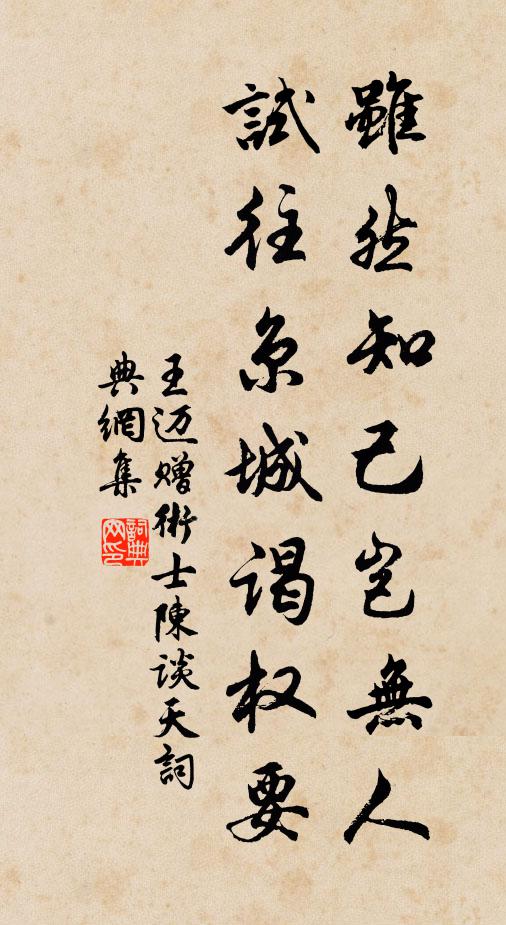 雖然知己豈無人
試往京城谒权要
王迈赠術士陳谈天詞
典網集
詞典网印